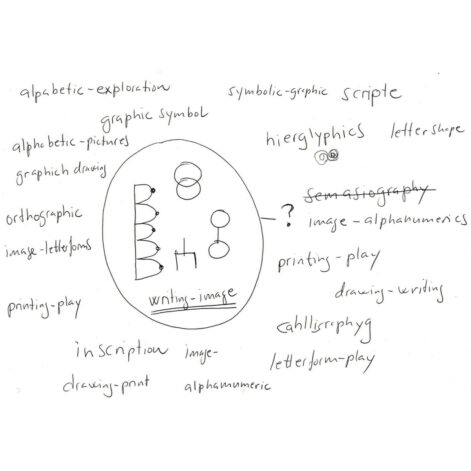 alpabetic-exploration
symbolic-graphic scripte
graphic symbol
alphabetic-pictures
hierglyphics lettershape
graphich drawing
semasiography
orthographic
? image-alphanumerics
image-letterforms
printing-play
drawing-writing
writing-image
printing-play
cahlligraphyg
inscription image-
letterform-play
drawing-print alphamumeric